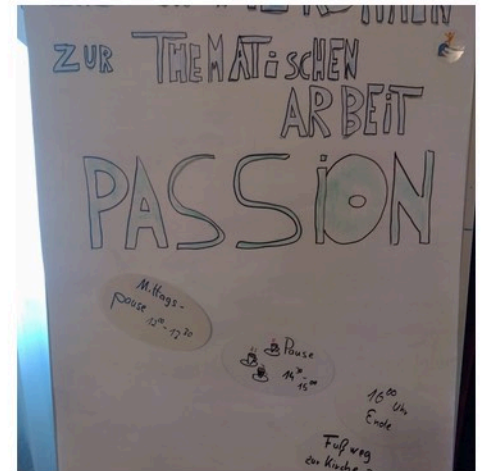 ZUR THEMATiSCHEN
ARBEiT
PASSiON
Mittags-
pause
Pause
14³⁰-
15⁰⁰
16⁰⁰ Uhr
Ende
Fußweg
zur Kirche